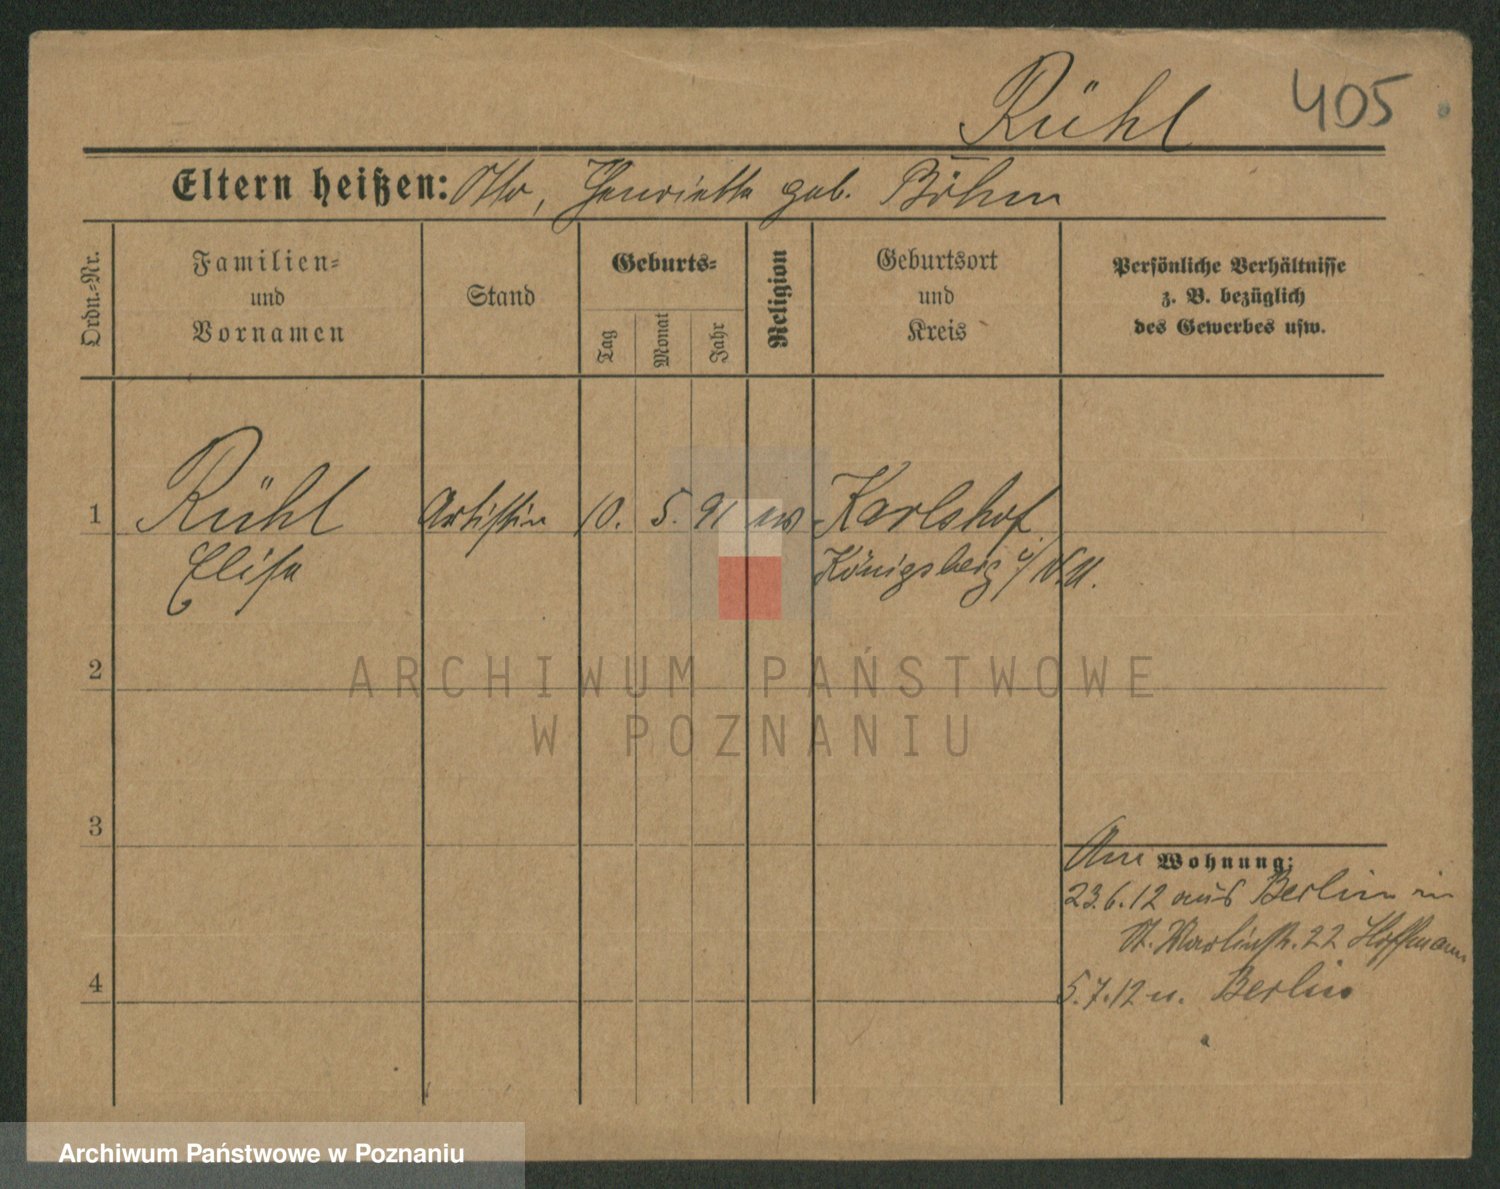 Rühl 405
Eltern heißen: Otto, Henriette geb. Böhm
Ordn.-Nr.
Familien-
und
Vornamen
Stand
Geburts-
Tag Monat Jahr
Religion
Geburtsort
und
Kreis
Persönliche Verhältnisse
z. B. bezüglich
des Gewerbes usw.
1 Rühl Artistin 10. 5. 91 ev Karlshof
Elise Königsberg i/N.M.
2
3
4
Am Wohnung:
23.6.12 aus Berlin in
St. Martinstr. 22 Hoffmann
5.7.12 n. Berlin
ARCHIWUM PAŃSTWOWE
W POZNANIU
Archiwum Państwowe w Poznaniu